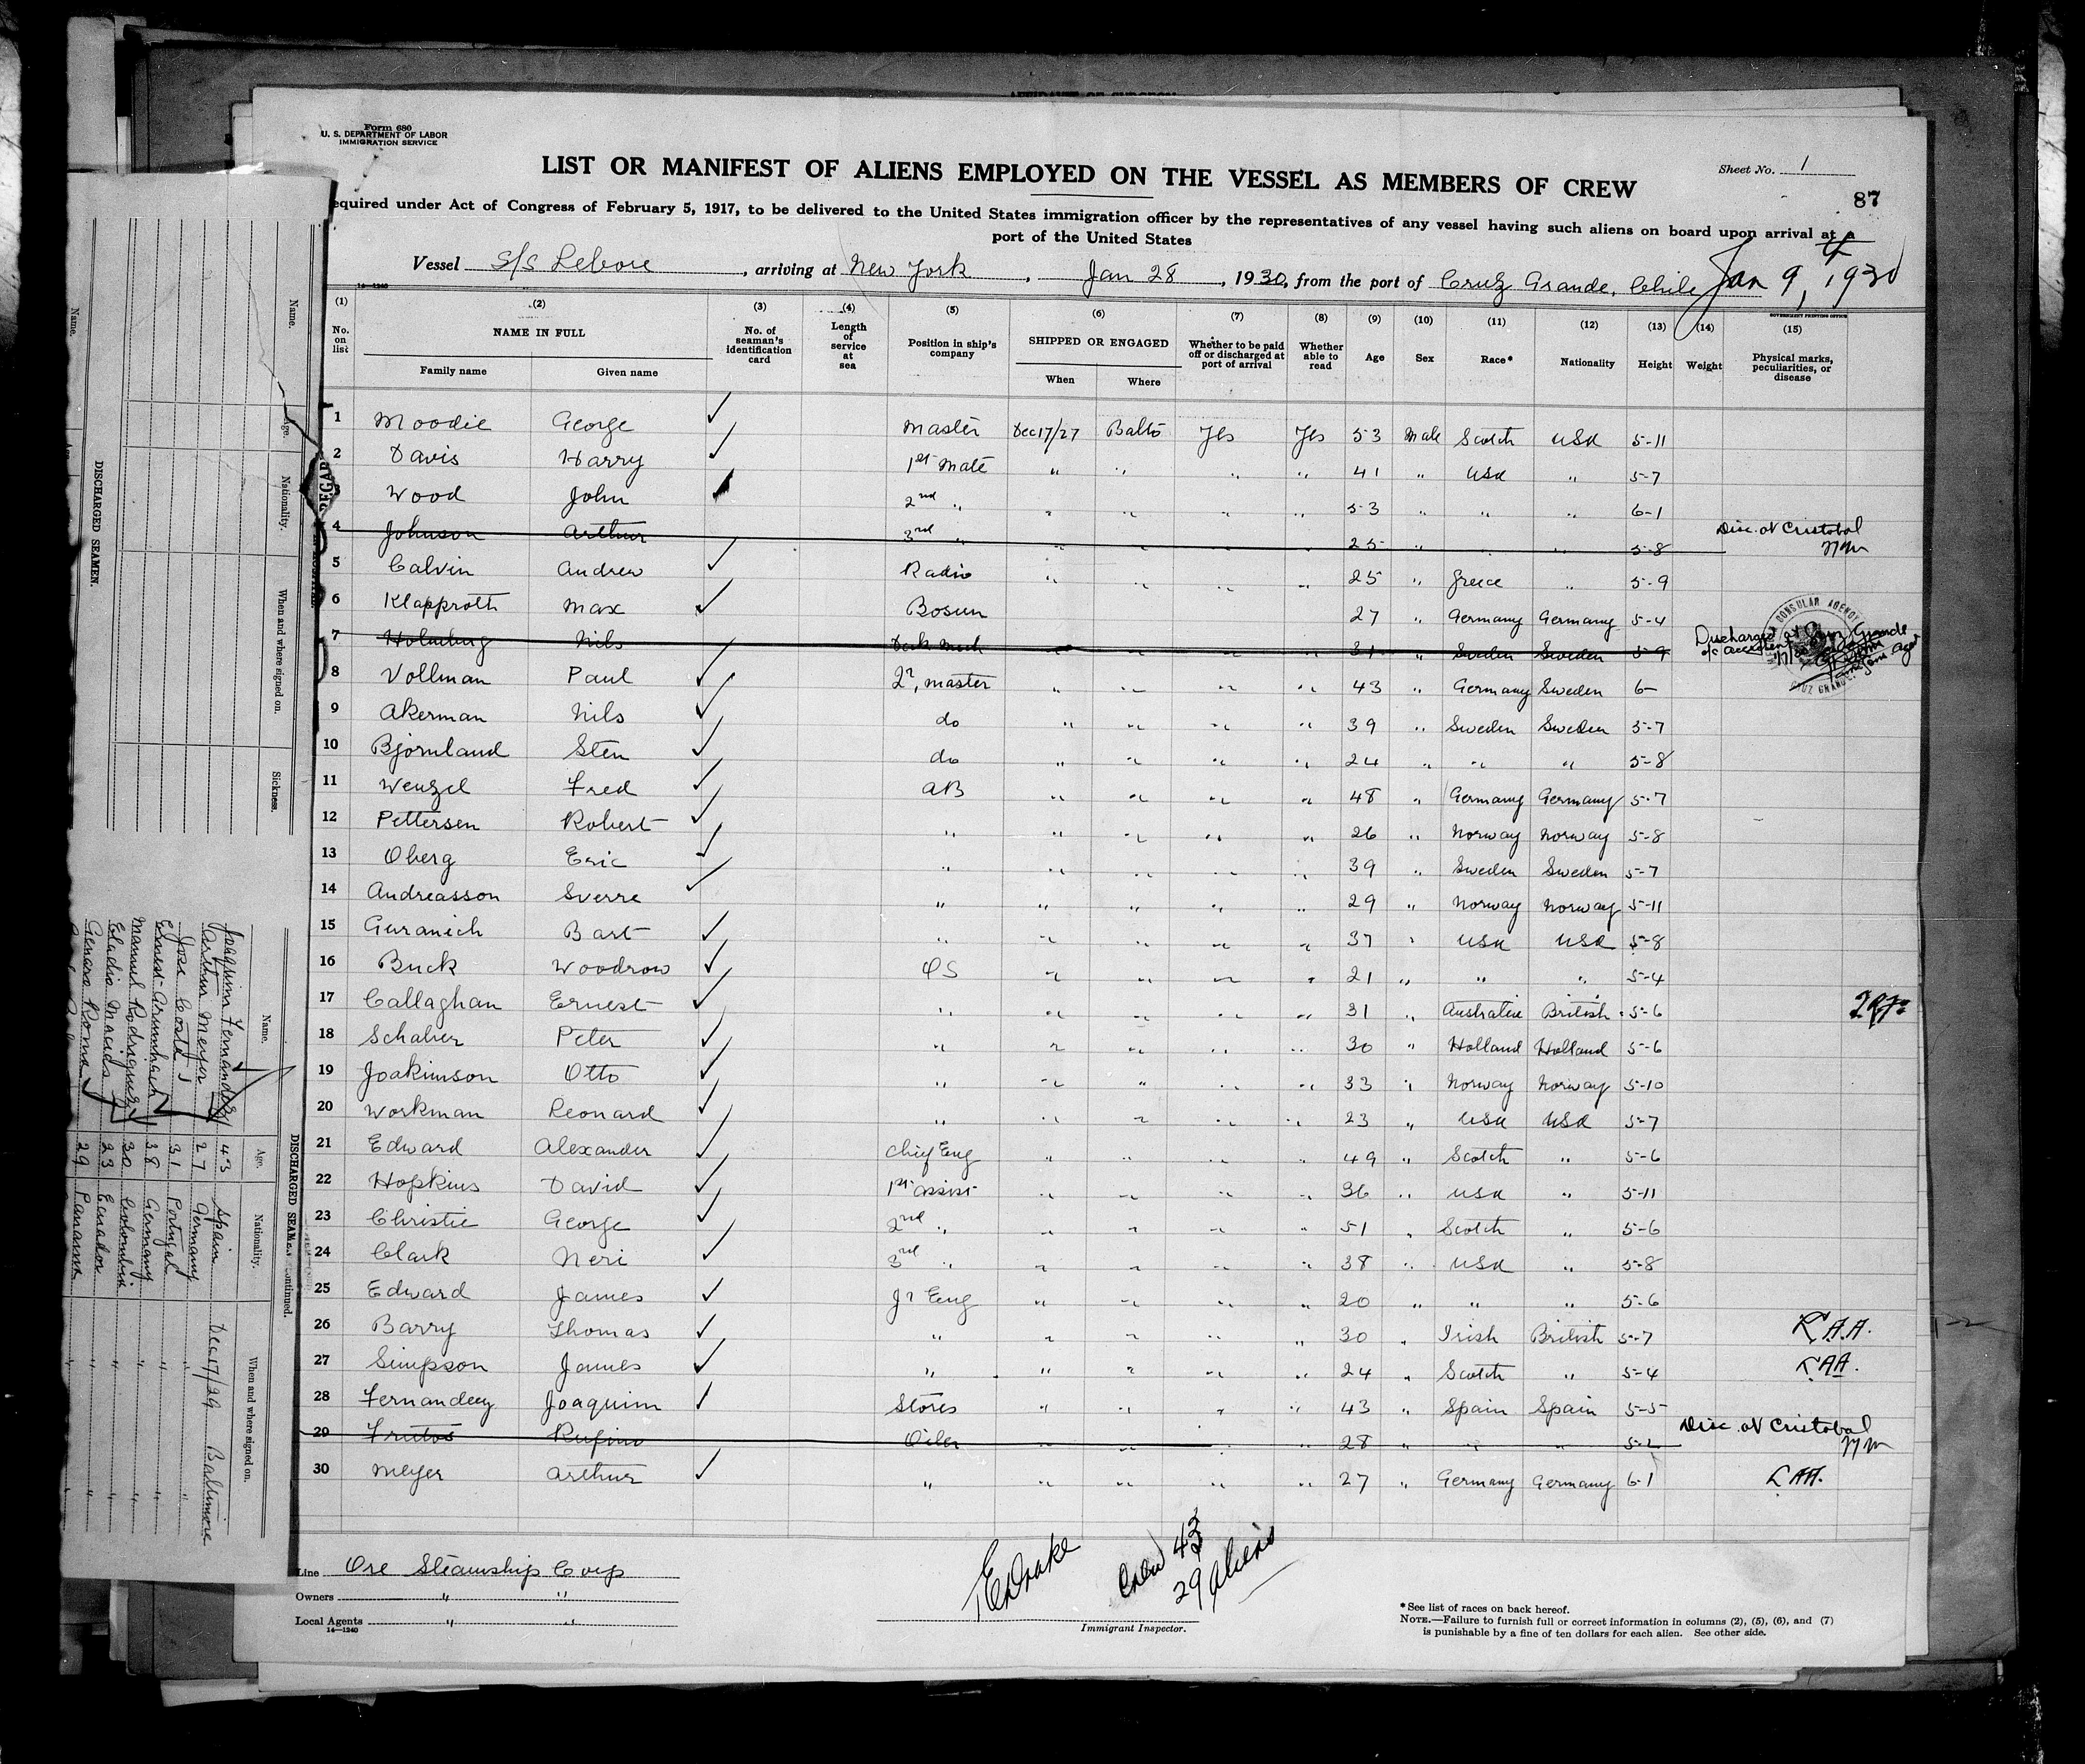 Form 680
U. S. DEPARTMENT OF LABOR
IMMIGRATION SERVICE
LIST OR MANIFEST OF ALIENS EMPLOYED ON THE VESSEL AS MEMBERS OF CREW
Sheet No. 1
87
equired under Act of Congress of February 5, 1917, to be delivered to the United States immigration officer by the representatives of any vessel having such aliens on board upon arrival at a
port of the United States
Vessel S/S Lebore, arriving at New York, Jan 28, 1930, from the port of Cruz Grande, Chile Jan 9th, 1930
14—1240
GOVERNMENT PRINTING OFFICE
(1) No. on list (2) NAME IN FULL Family name Given name (3) No. of seaman's identification card (4) Length of service at sea (5) Position in ship's company (6) SHIPPED OR ENGAGED When Where (7) Whether to be paid off or discharged at port of arrival (8) Whether able to read (9) Age (10) Sex (11) Race* (12) Nationality (13) Height (14) Weight (15) Physical marks, peculiarities, or disease
1 Moodie George ✓ Master Dec 17/27 Balto Yes Yes 53 Male Scotch USA 5-11
2 Davis Harry ✓ 1st Mate " " " " 41 " USA " 5-7
3 Wood John 2nd " " " " " 53 " " " 6-1
4 Johnson Arthur 3rd " " " " " 25 " " " 5-8 Disc. at Cristobal
5 Calvin Andrew ✓ Radio " " " " 25 " Greece " 5-9
6 Klapproth Max ✓ Bosun 27 " Germany Germany 5-4
7 Holmburg Nils Deck Mech " " " " 31 " Sweden Sweden 5-9 Discharged at Cruz Grande
8 Vollman Paul ✓ Qr. master " " " " 43 " Germany Sweden 6-
9 Akerman Nils ✓ do " " " " 39 " Sweden Sweden 5-7
10 Bjornland Sten ✓ do " " " " 24 " " " 5-8
11 Wenzel Fred ✓ AB " " " " 48 " Germany Germany 5-7
12 Pettersen Robert ✓ " " " " " 26 " Norway Norway 5-8
13 Oberg Eric ✓ " " " " " 39 " Sweden Sweden 5-7
14 Andreasson Sverre ✓ " " " " " 29 " Norway Norway 5-11
15 Guranich Bart ✓ " " " " " 37 " USA USA 5-8
16 Buck Woodrow ✓ OS " " " " 21 " " " 5-4
17 Callaghan Ernest ✓ " " " " " 31 " Australia British 5-6
18 Schaber Peter ✓ " " " " " 30 " Holland Holland 5-6
19 Joakimson Otto ✓ " " " " " 33 " Norway Norway 5-10
20 Workman Leonard ✓ " " " " " 23 " USA USA 5-7
21 Edward Alexander ✓ Chief Eng " " " " 49 " Scotch " 5-6
22 Hopkins David ✓ 1st assist " " " " 36 " USA " 5-11
23 Christie George ✓ 2nd " " " " " 51 " Scotch " 5-6
24 Clark Neri ✓ 3rd " " " " " 38 " USA " 5-8
25 Edward James ✓ Jr Eng " " " " 20 " " " 5-6
26 Barry Thomas ✓ " " " " " 30 " Irish British 5-7
27 Simpson James ✓ " " " " " 24 " Scotch " 5-4
28 Fernandez Joaquim ✓ Stores " " " " 43 " Spain Spain 5-5
29 Frutos Rufino Oiler " " " " 28 " " " 5-2 Disc. at Cristobal
30 Meyer Arthur ✓ " " " " " 27 " Germany Germany 6-1
Line Ore Steamship Corp
Owners " "
Local Agents " "
14—1240
E Drake
Immigrant Inspector.
Crew 43
29 Aliens
*See list of races on back hereof.
NOTE.—Failure to furnish full or correct information in columns (2), (5), (6), and (7)
is punishable by a fine of ten dollars for each alien. See other side.
DISCHARGED SEAMEN.
Name. Age. Nationality. When and where signed on. Sickness.
DISCHARGED SEAMEN—Continued.
Name. Age. Nationality. When and where signed on.
Joaquim Fernandez 43 Spain Dec 17/29 Baltimore
Arthur Meyer 27 Germany "
Jose Costa 31 Portugal "
Ernest 38 Germany "
Manuel Rodriguez 30 Colombia "
Eladio Macias 23 Ecuador "
Genaro Roma 29 Panama "